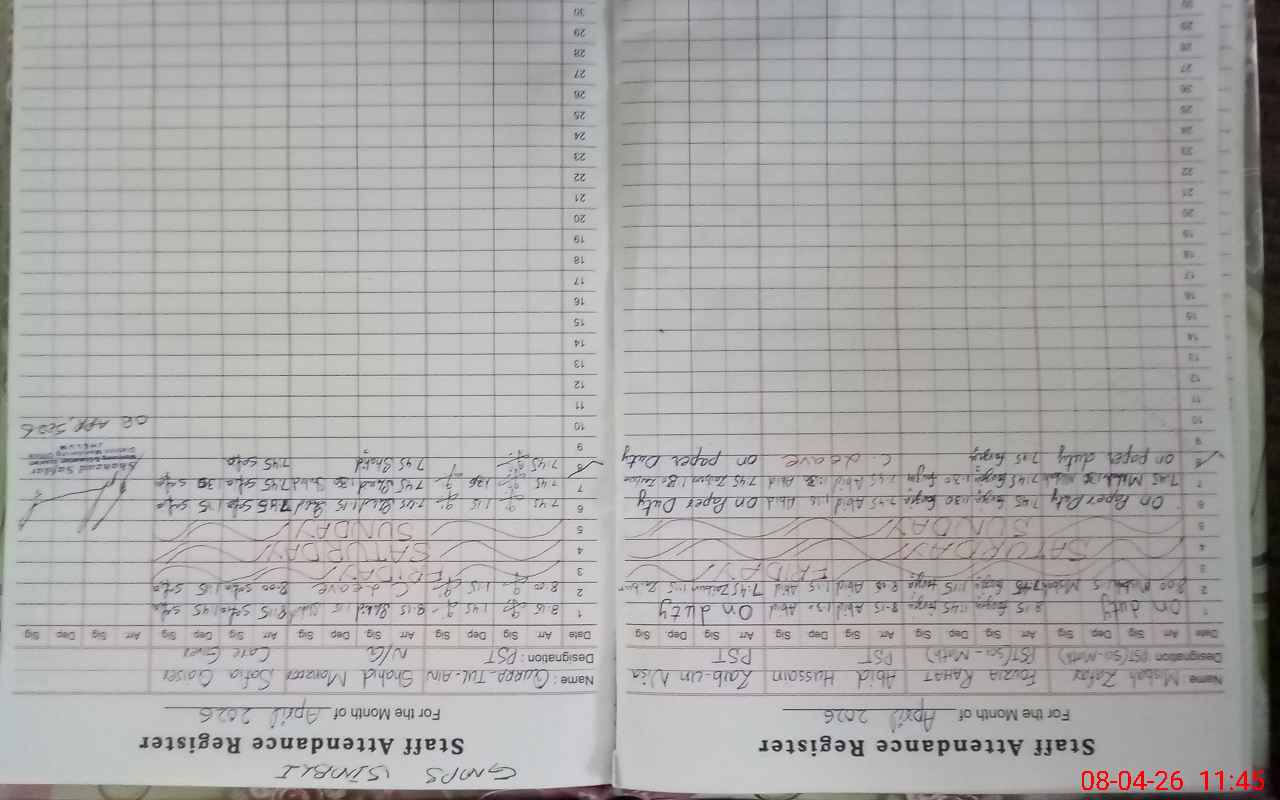 GMPS SIMBLI
Staff Attendance Register
For the Month of April 2026
Name : Misbah Zafar FOUZIA RAHAT Abid Hussain Zaib-un Nisa
Designation : PST(Sci-Math) PST(Sci-Math) PST PST
Date Arr. Sig Dep Sig Arr. Sig Dep Sig Arr. Sig Dep Sig Arr. Sig Dep Sig
1 On duty 8.15 11:45 8.15 Abid 1.30 Abid On duty
2 8:00 Misbah 1.15 Misbah 7:45 1:15 8.15 Abid 1.15 Abid 7:45 1:15
3 FRIDAY
4 SATURDAY
5 SUNDAY
6 On Paper Duty 7.45 1:30 7.45 Abid 1.15 Abid On Paper Duty
7 7.45 7.45 1:30 7.45 Abid Abid 7.45
8 on paper duty 7.45 C. Leave on paper Duty
9
10
11
12
13
14
15
16
17
18
19
20
21
22
23
24
25
26
27
28
29
30
Staff Attendance Register
For the Month of April 2026
Name : QURRA-TUL-AIN Shahid Manzoor Safia Qaiser
Designation : PST N/Q Care Giver
Date Arr. Sig Dep Sig Arr. Sig Dep Sig Arr. Sig Dep Sig Arr. Sig Dep Sig
1 8:15 1:45 8.15 Shahid 1.15 8.15 Safia 1.45 Safia
2 8:00 1:15 C. Leave 8:00 Safia 1.15 Safia
3 FRIDAY
4 SATURDAY
5 SUNDAY
6 7.45 1:15 7.45 Shahid 1.15 Shahid 7.45 Safia 1.15 Safia
7 7.45 1.30 7.45 Shahid 1.30 Shahid 7.45 Safia 1.30 Safia
8 7.45 7.45 Shahid 7.45 Safia
9
10
11
12
13
14
15
16
17
18
19
20
21
22
23
24
25
26
27
28
29
30
Shahzad Safdar
08 APR 2026
08-04-26 11:45